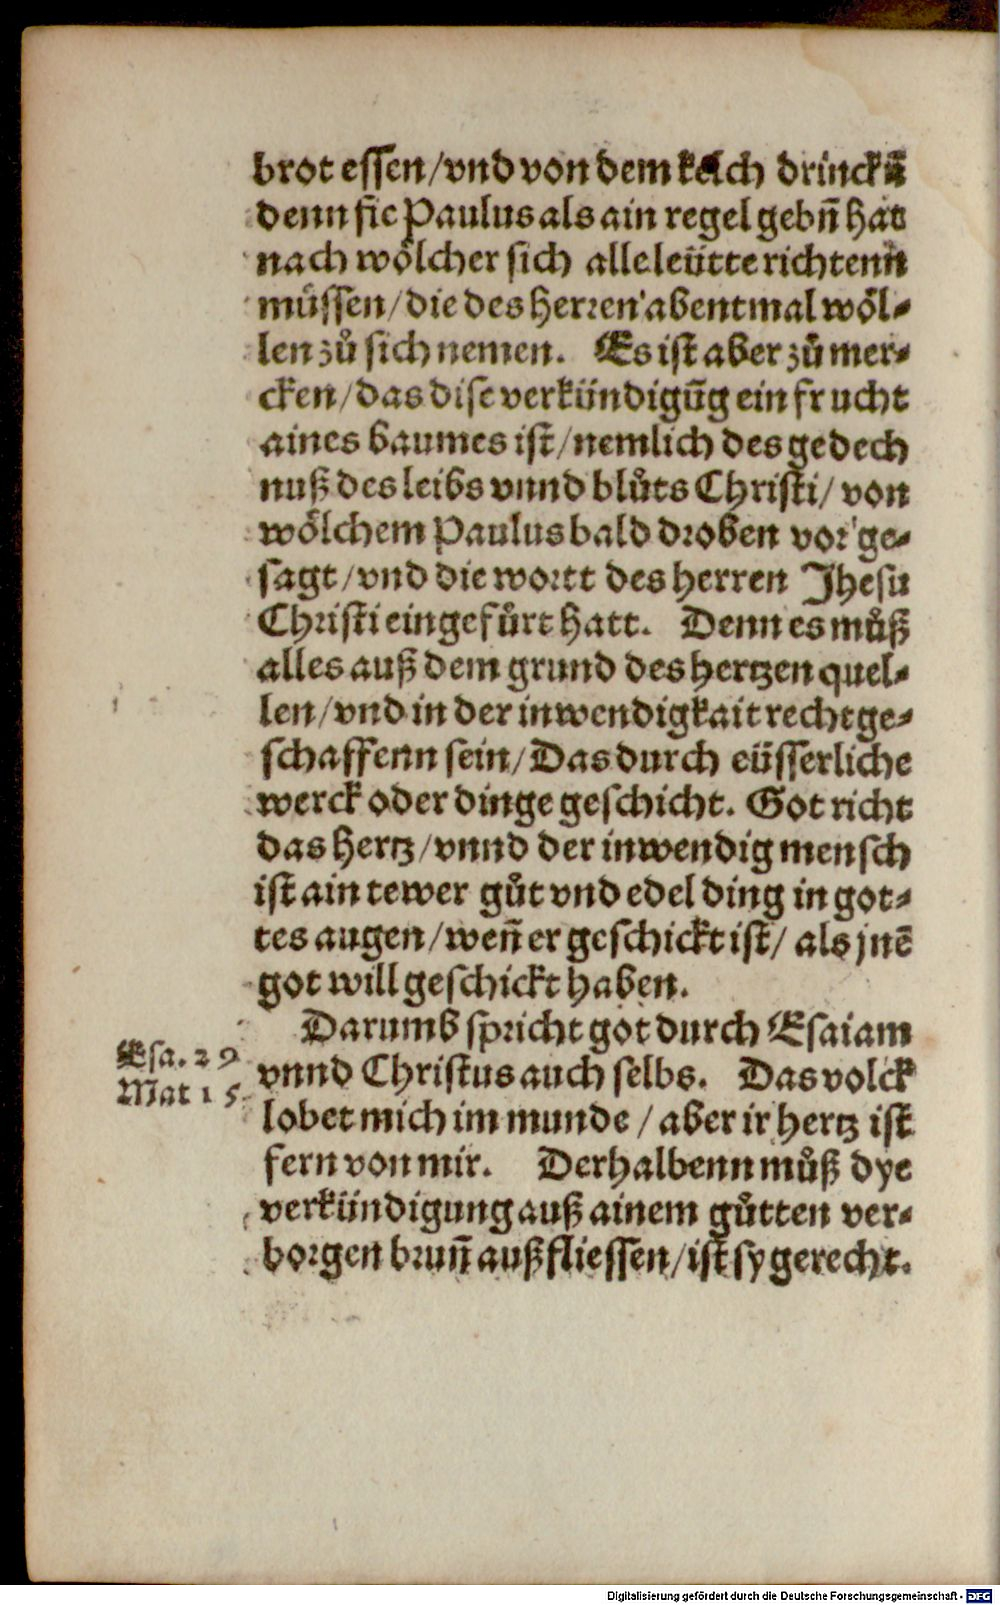 brot essen/vnd von dem kelch drinckñ
denn sie Paulus als ain regel gebñ hat
nach woͤlcher sich alle leütte richtenn
müssen/die des herren abentmal woͤl-
len zů sich nemen. Es ist aber zů mer-
cken/das dise verkündigūg ein frucht
aines baumes ist/nemlich des gedech
nuß des leibs vnnd blůts Christi/ von
woͤlchem Paulus bald droben vor ge-
sagt/vnd die wortt des herren Jhesu
Christi eingefůrt hatt. Denn es můß
alles auß dem grund des hertzen quel-
len/vnd in der inwendigkait recht ge-
schaffenn sein/Das durch eüsserliche
werck oder dinge geschicht. Got richt
das hertz/vnnd der inwendig mensch
ist ain tewer gůt vnd edel ding in got-
tes augen/weñ er geschickt ist/ als jnē
got will geschickt haben.
Darumb spricht got durch Esaiam
Esa. 29
vnnd Christus auch selbs. Das volck
Mat 15.
lobet mich im munde / aber ir hertz ist
fern von mir. Derhalbenn můß dye
verkündigung auß ainem gůtten ver-
borgen bruñ außfliessen/ist sy gerecht.
Digitalisierung gefördert durch die Deutsche Forschungsgemeinschaft - DFG